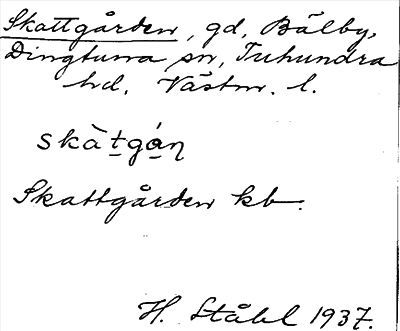 Skattgården, gd, Bälby,
Dingtuna sn, Tuhundra
hd, Västm. l.
skàt̠gá̠ꞃ
Skattgården kb.
H. Ståhl 1937.